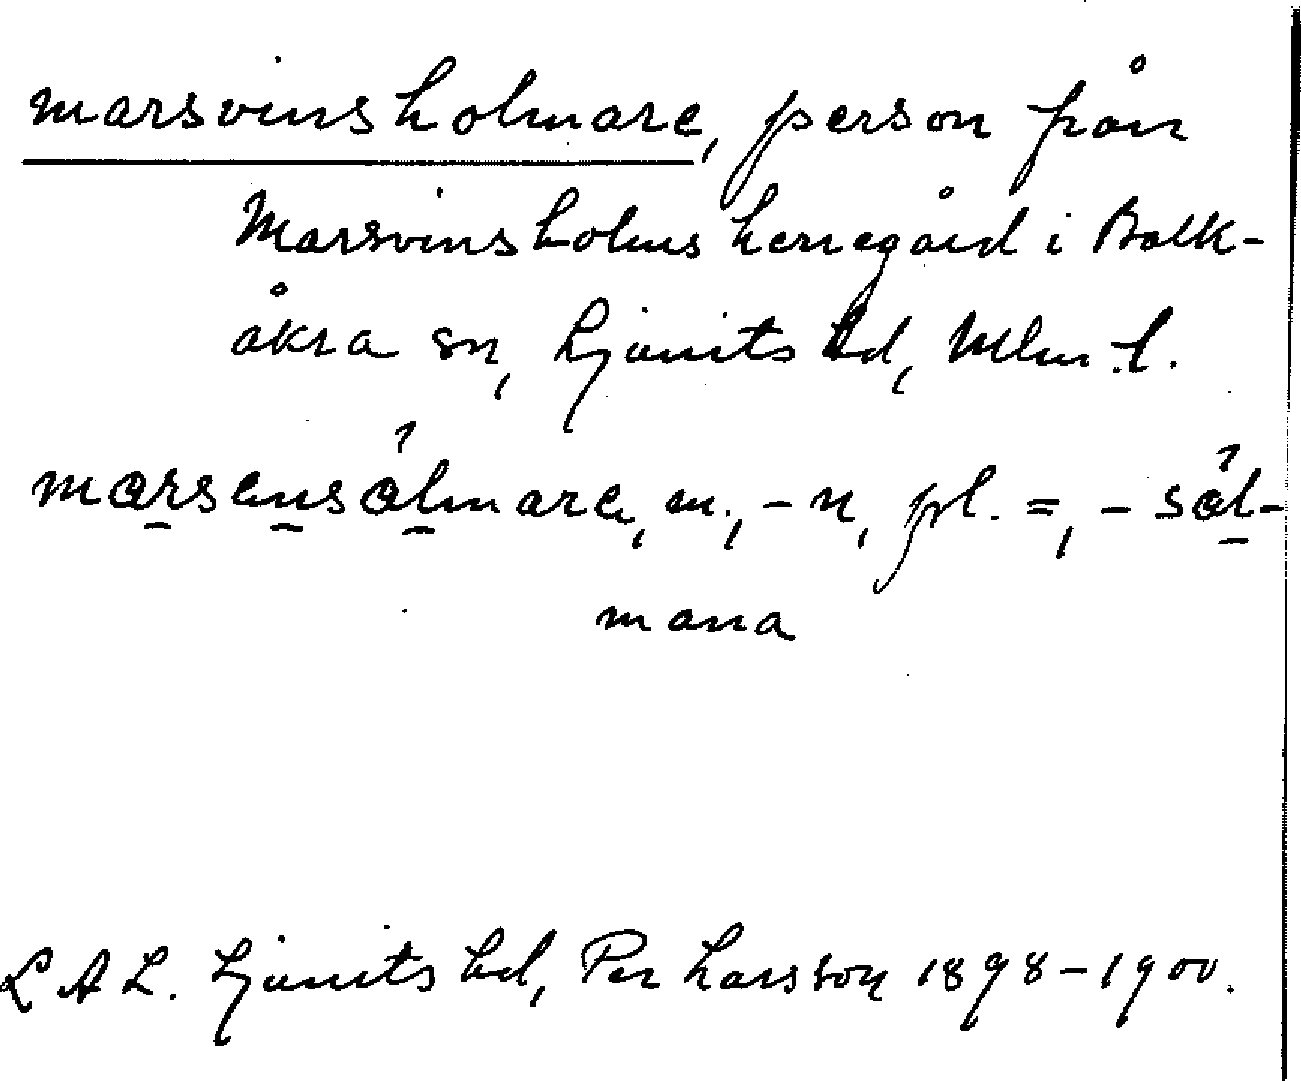 marsvinsholmare, person från
Marsvinsholms herregård i Balk-
åkra sn, Ljunits hd, Mlm. l.
marsensålmare, m., -n, pl. =, -sål-
mana
L A L. Ljunits hd, Per Larsson 1898-1900.